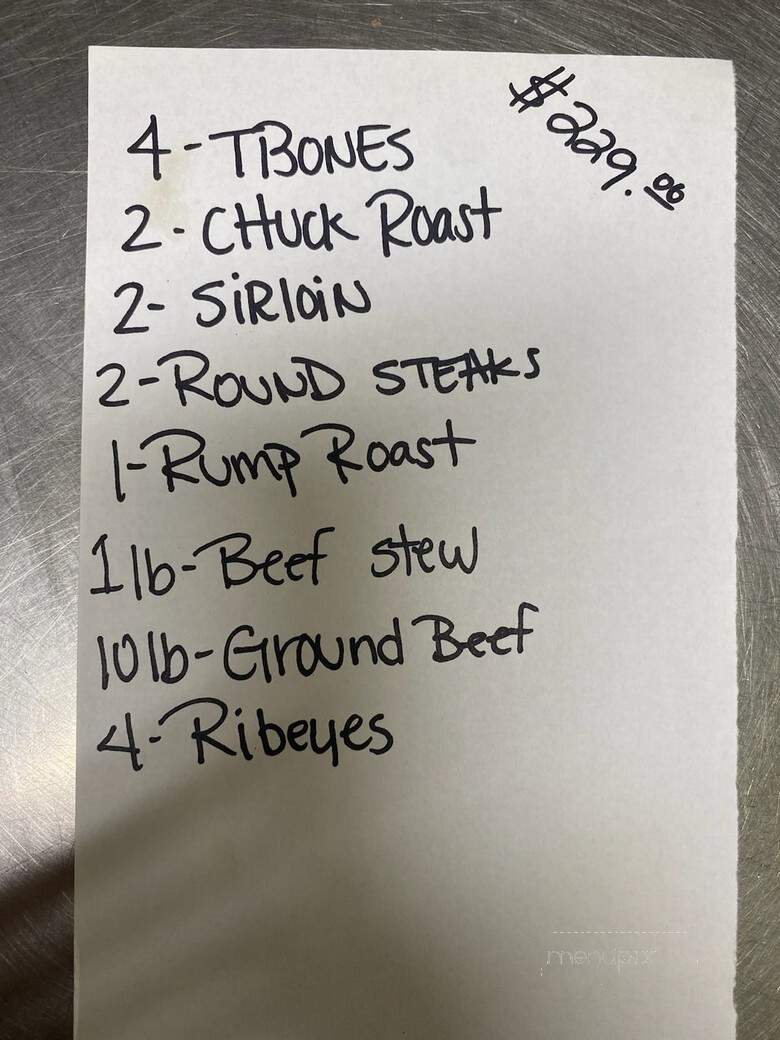 $229.00
4-TBONES
2-CHUCK Roast
2-SiRloiN
2-ROUND STEAKS
1-Rump Roast
1lb-Beef stew
10lb-Ground Beef
4-Ribeyes
menupix